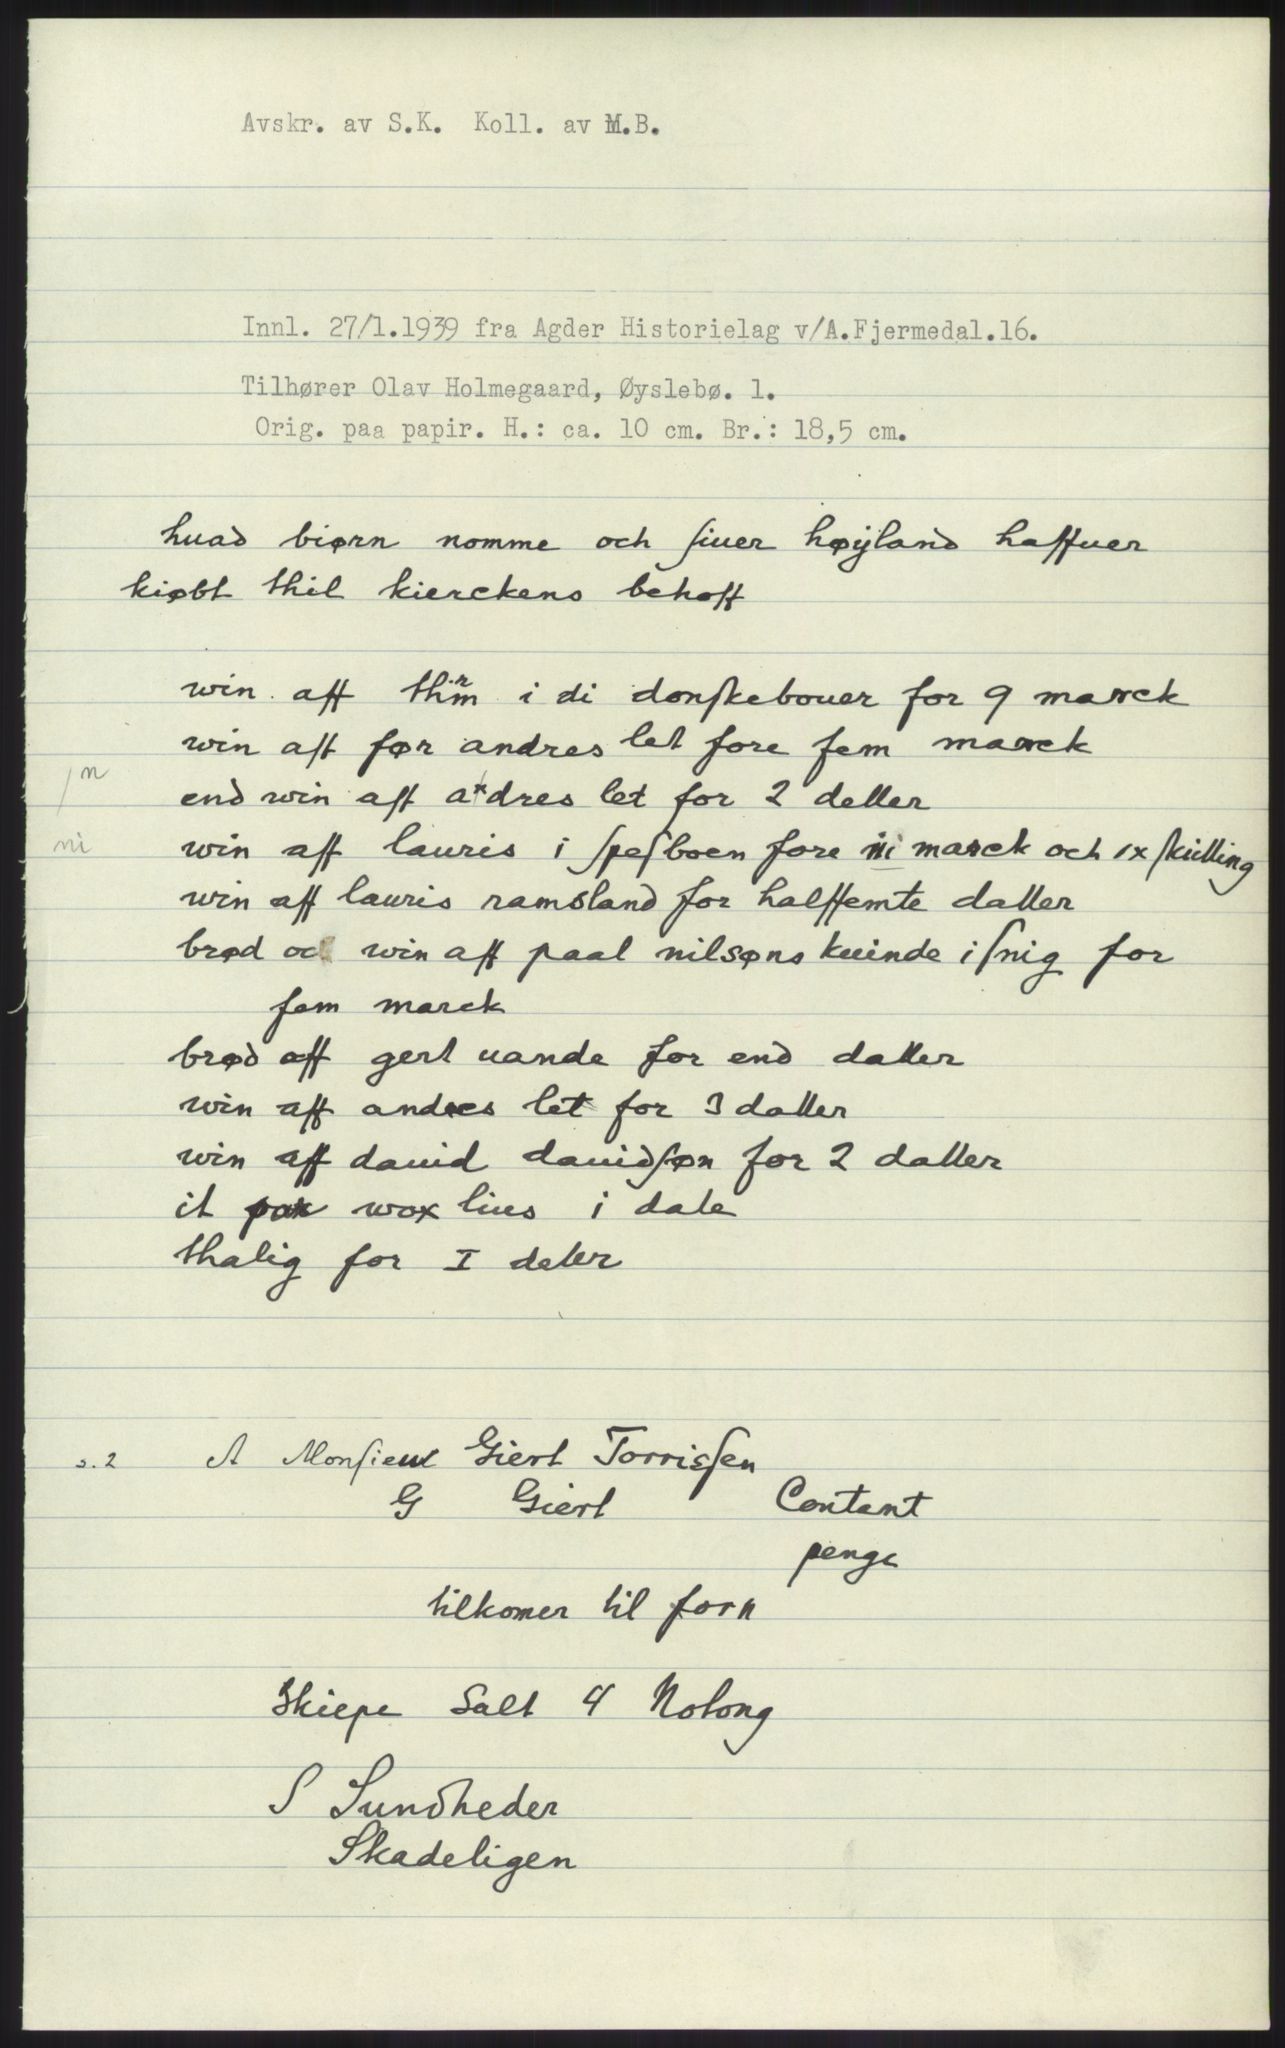 Avskr. av S.K. Koll. av M.B.
Innl. 27/1.1939 fra Agder Historielag v/A.Fjermedal.16.
Tilhører Olav Holmegaard, Øyslebø. 1.
Orig. paa papir. H.: ca. 10 cm. Br.: 18,5 cm.
huad biørn nomme och siuer høyland haffuer
kiøbt thil kierckens behoff
win aff i di donskebouer for 9 marck
win aff før andres let fore fem marck
n
end win aff a*dres let for 2 deller
ni
win aff lauris i spesboen fore ni marck och ix skilling
win aff lauris ramsland for halffemte daller
brød och win aff paal nilsøns kuinde i snig for
fem marck
brød aff gert uande for end daller
win aff andres let for 3 daller
win aff dauid dauidsøn for 2 daller
it par wox lius i dale
thalig for I deler
s. 2 A Monsieur Giert Torrissen
G Giert Contant
penge
tilkomer til forn
Skiepe Salt 4 Nolong
S Sundheder
Skadeligen